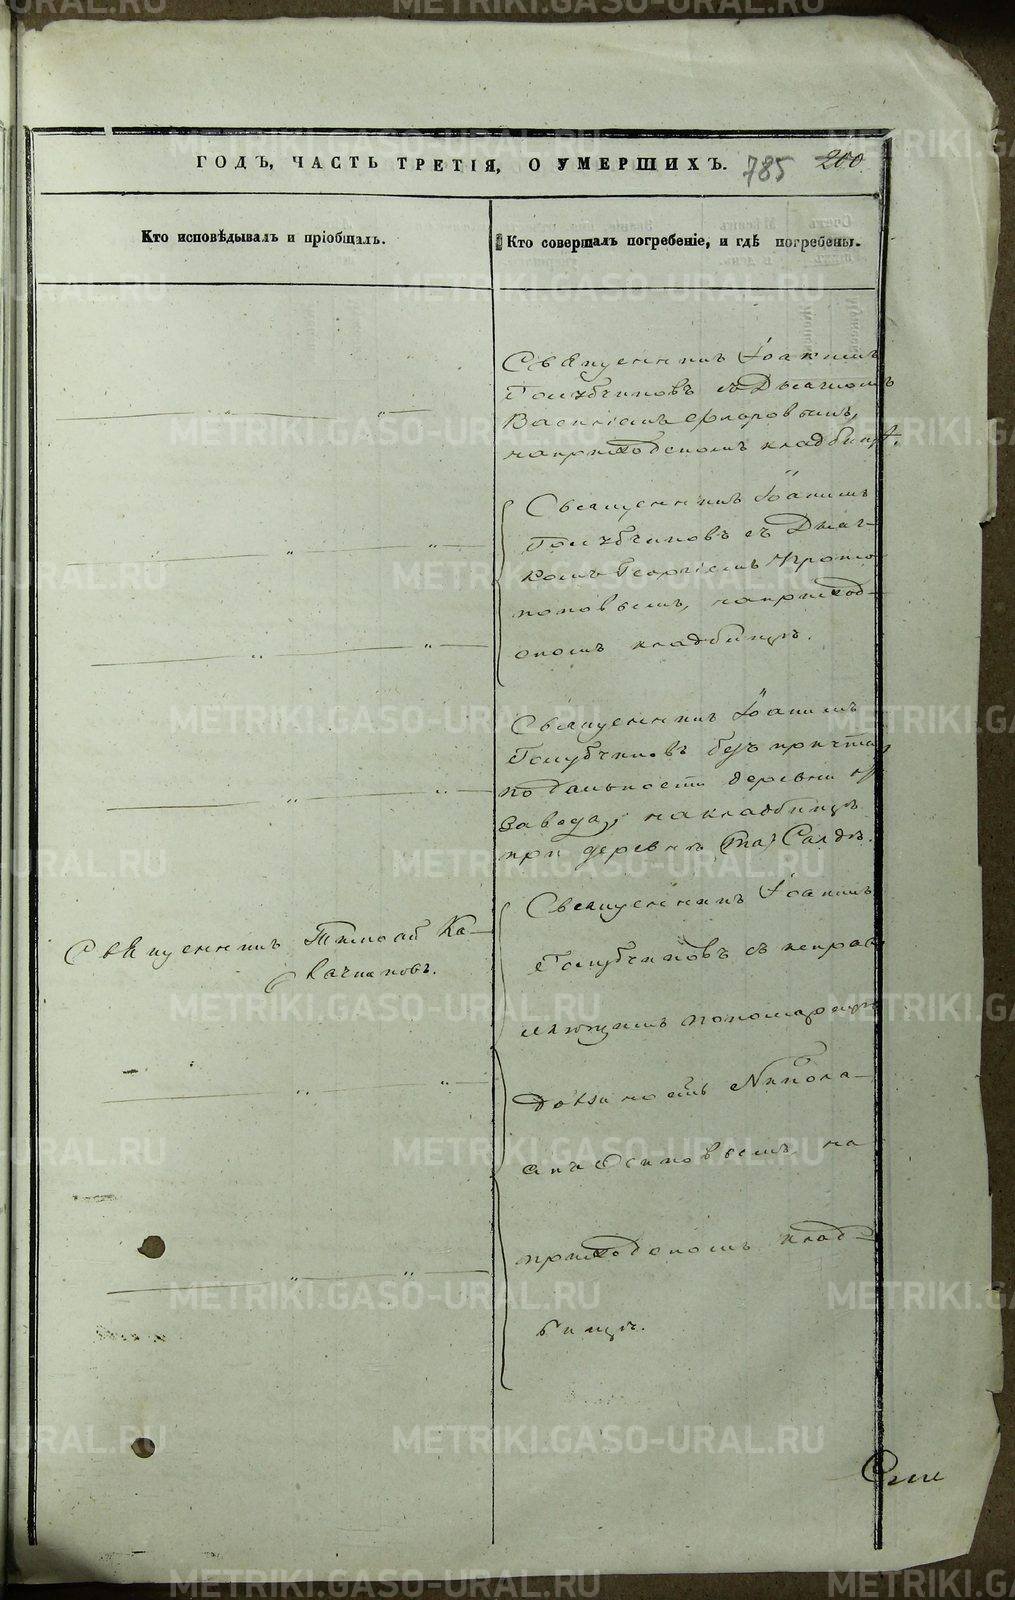 ГОДЪ, ЧАСТЬ ТРЕТІЯ, О УМЕРШИХЪ. 785 200
Кто исповѣдывалъ и пріобщалъ.
Кто совершалъ погребеніе, и гдѣ погребены.
Священникъ Іоакимъ
Голубчиковъ съ Дьякономъ
Василіемъ Флоровымъ,
на приходскомъ кладбищѣ.
Священникъ Іоакимъ
Голубчиковъ съ Дьяч-
комъ Георгіемъ
поповымъ, на приход-
скомъ кладбищѣ.
Священникъ Іоакимъ
Голубчиковъ безъ причта
по дальности деревни
Завода, на кладбищѣ
при деревнѣ Салдѣ.
Священникъ Тимофей Ка-
Священникъ Іоакимъ
Голубчиковъ съ исправ-
ляющимъ пономарскую
должность Никола-
емъ Осиповымъ, на
приходскомъ клад-
бищѣ.
METRIKI.GASO-URAL.RU